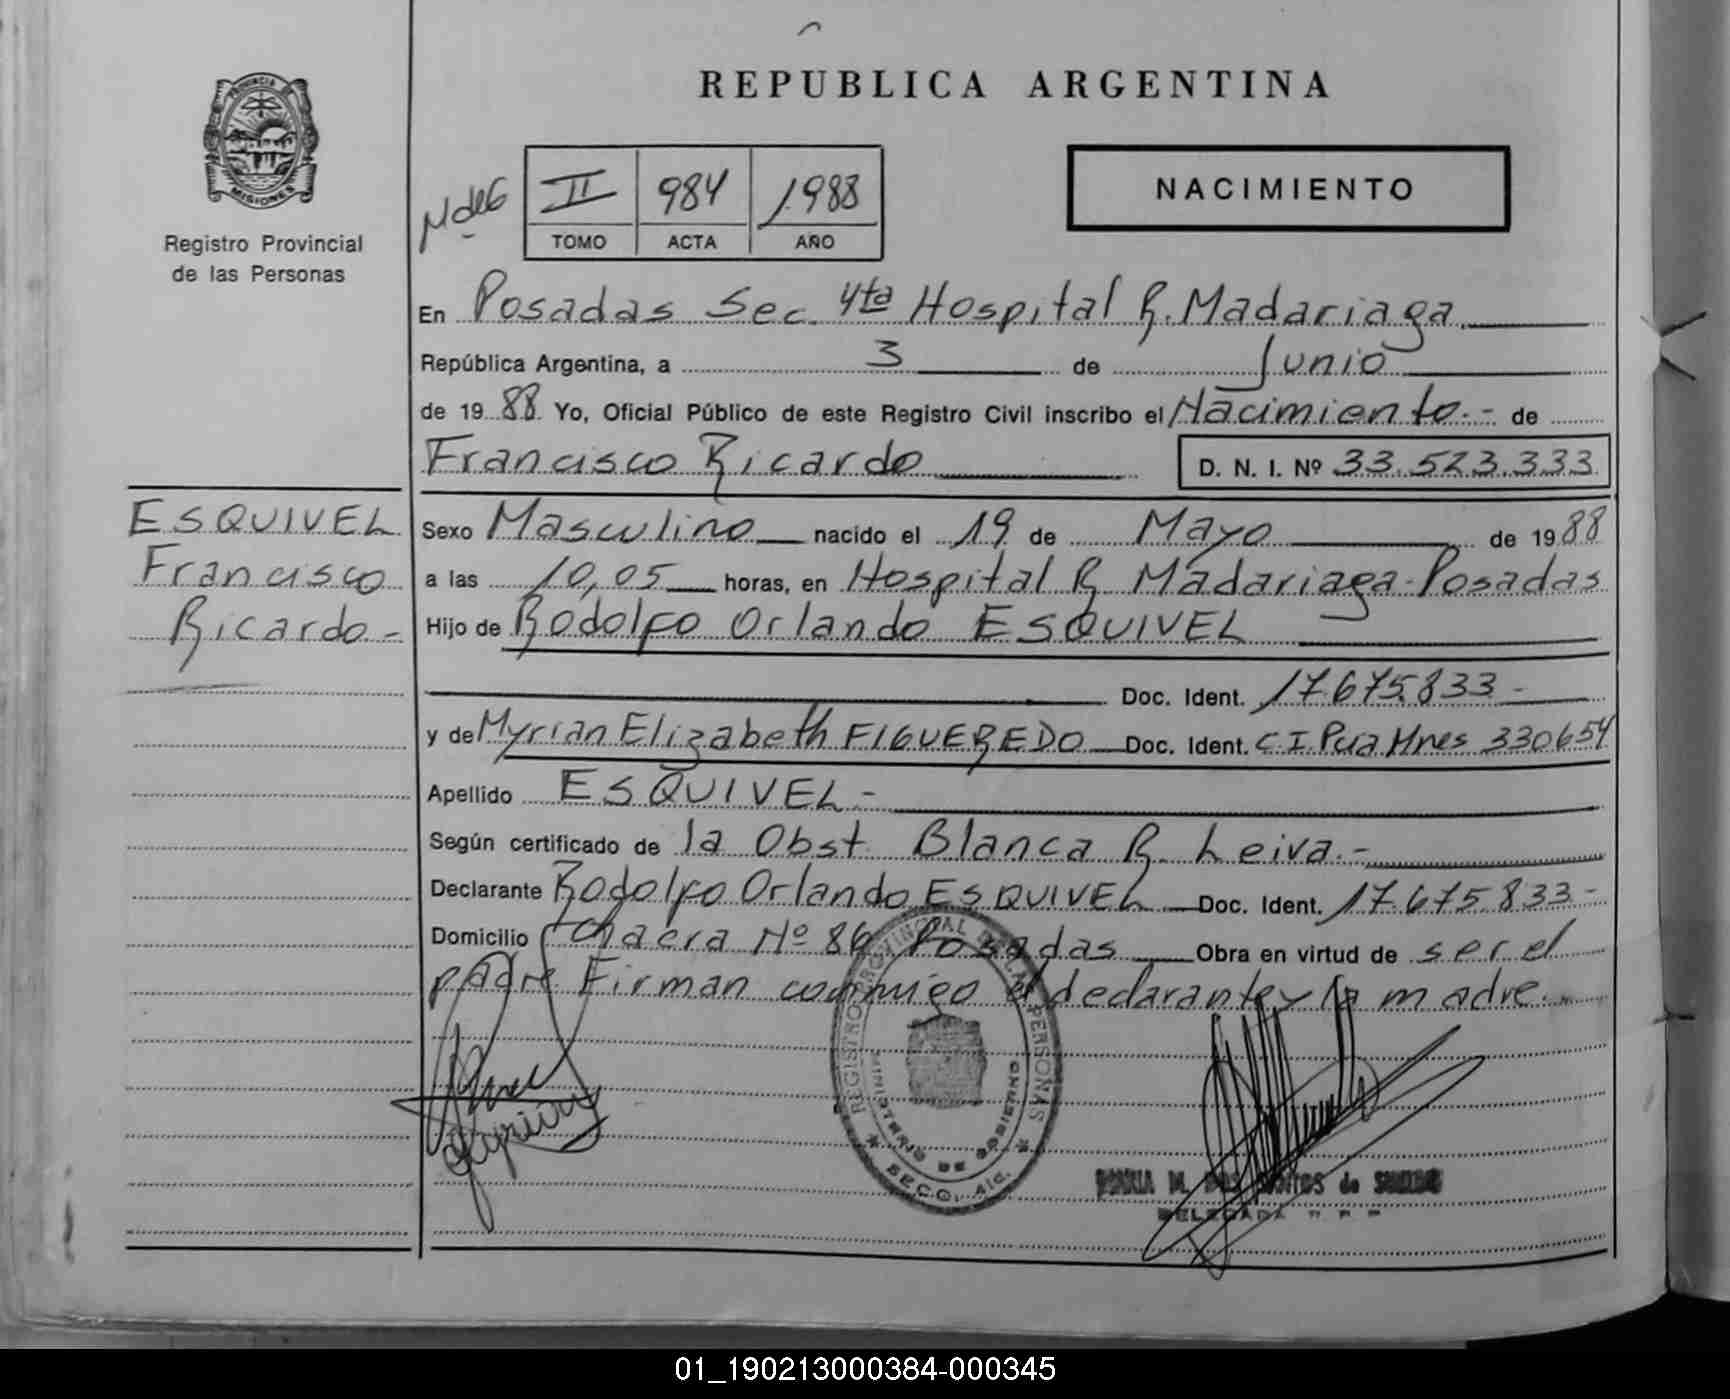 REPUBLICA ARGENTINA
PROVINCIA DE
MISIONES
Registro Provincial
de las Personas
II 984 1988
TOMO ACTA AÑO
NACIMIENTO
En Posadas Sec. 4ta Hospital R. Madariaga
República Argentina, a 3 de Junio
de 19 88 Yo, Oficial Público de este Registro Civil inscribo el Nacimiento.- de
Francisco Ricardo D. N. I. Nº 33.523.333
ESQUIVEL
Francisco
Ricardo-
Sexo Masculino nacido el 19 de Mayo de 19 88
a las 10,05 horas, en Hospital R. Madariaga-Posadas
Hijo de Rodolfo Orlando ESQUIVEL
Doc. Ident. 17.675.833-
y de Myrian Elizabeth FIGUEREDO Doc. Ident. C I. Pcia Mnes 330654
Apellido ESQUIVEL-
Según certificado de la Obst. Blanca R. Leiva.-
Declarante Rodolfo Orlando ESQUIVEL Doc. Ident. 17.675.833-
Domicilio Chacra Nº 86 Posadas Obra en virtud de ser el
padre Firman conmigo el declarante y la madre.
REGISTRO PROVINCIAL DE LAS PERSONAS
MINISTERIO DE GOBIERNO
MARIA M. DOS SANTOS de
DELEGADA
01_190213000384-000345